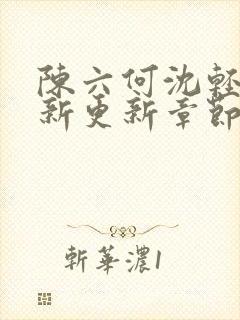 陳六何沈輕
新更新章節
斬華濃1